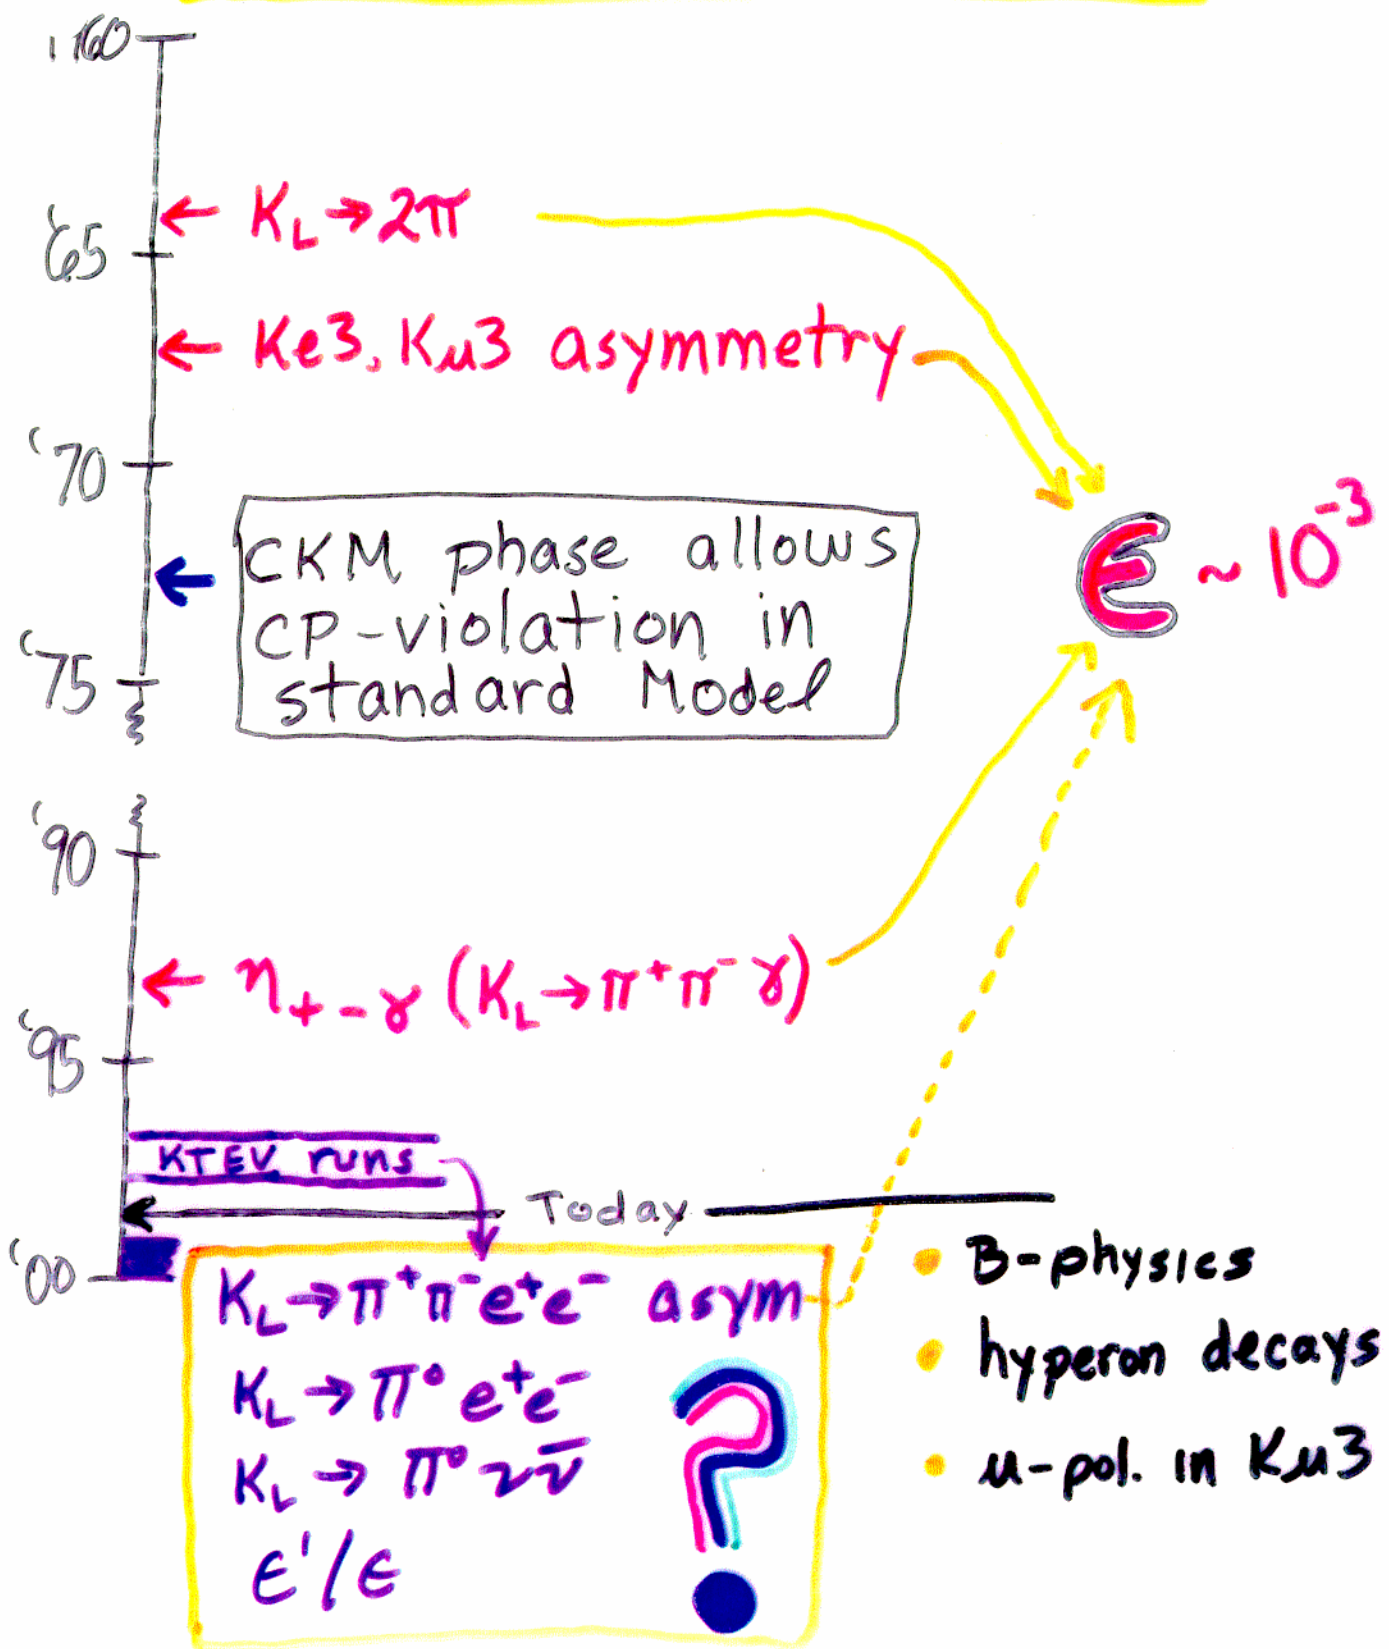 '60
K_L → 2π
'65
Ke3, Kμ3 asymmetry
'70
CKM phase allows
CP-violation in
standard Model
ϵ ~ 10⁻³
'75
'90
η₊₋γ (K_L → π⁺π⁻γ)
'95
KTEV runs
Today
'00
K_L → π⁺π⁻e⁺e⁻ asym
K_L → π⁰ e⁺e⁻
K_L → π⁰ νν̅
ϵ'/ϵ
?
• B-physics
• hyperon decays
• μ-pol. in Kμ3